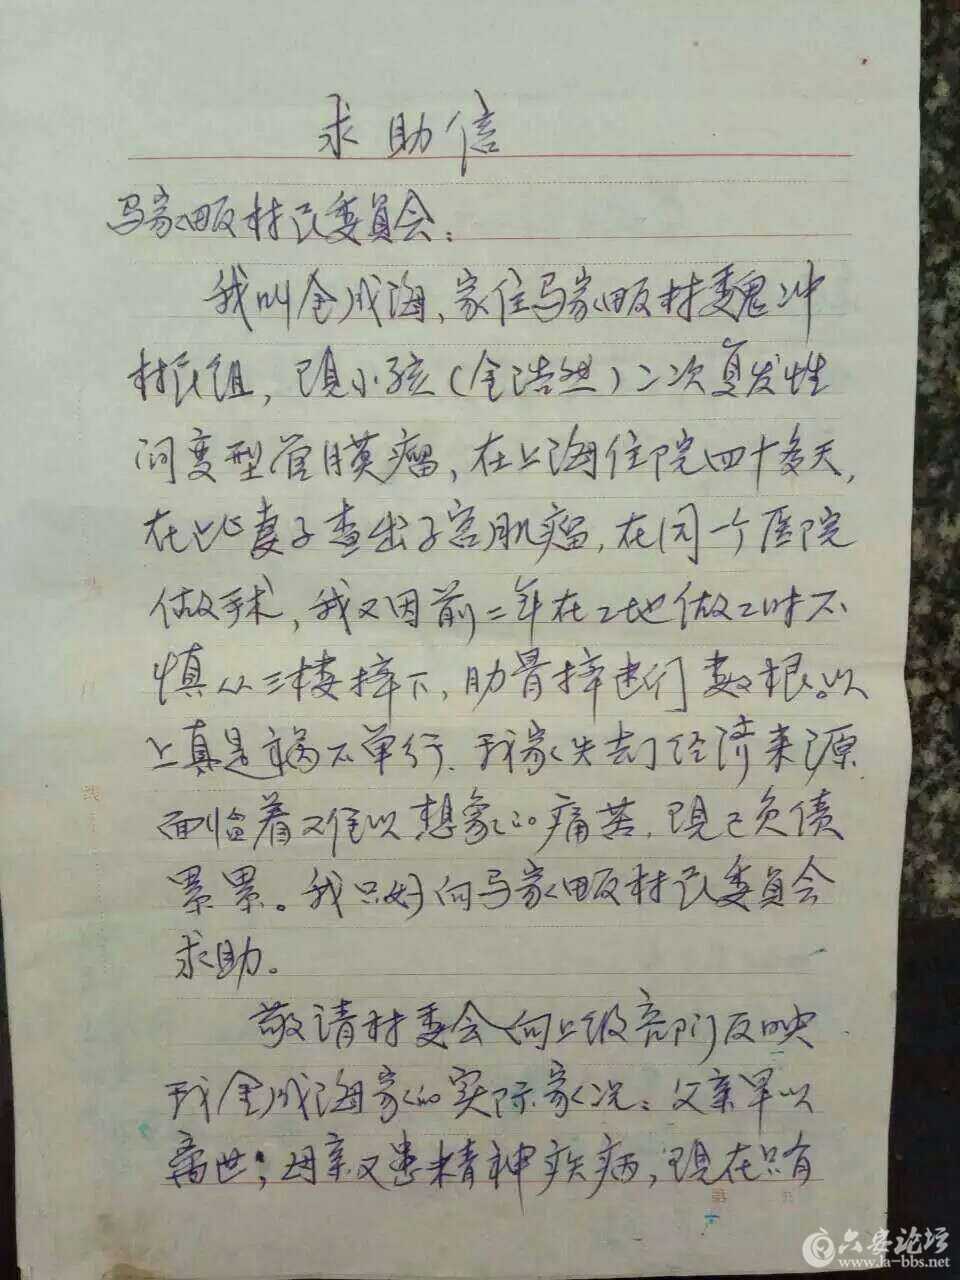 求助信
马家畈村民委员会：
我叫金成海，家住马家畈村魏冲
村民组，现小孩（金浩然）二次复发性
间变型管膜瘤，在上海住院四十多天，
在此妻子查出子宫肌瘤，在同一个医院
做手术，我又因前二年在工地做工时不
慎从三楼摔下，肋骨摔断数根。以
上真是祸不单行。我家失去了经济来源
面临着又难以想象的痛苦，现已负债
累累。我只好向马家畈村民委员会
求助。
敬请村委会向上级部门反映
我金成海家的实际家况：父亲早以
离世；母亲又患精神疾病，现在只有
第 页
六安论坛
www.la-bbs.net